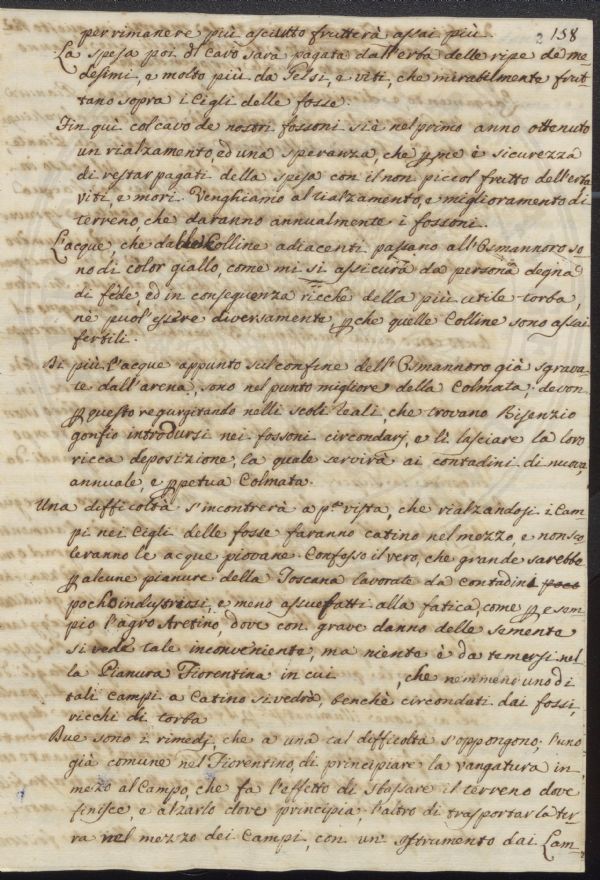 2 158
per rimanere più asciutto frutterà assai più.
La spesa poi di Cavo sarà pagata dall'erba delle ripe de me-
desimi, e molto più da Gelsi, e viti, che mirabilmente frut-
tano sopra i Cigli delle fosse.
Fin quì col cavo de nostri fossoni si è nel primo anno ottenuto
un rialzamento, ed una speranza, che p me è sicurezza
di restar pagati della spesa con il non piccol frutto dell'erba
viti, e mori. Venghiamo al rialzamento, e miglioramento di
terreno, che daranno annualmente i fossoni.
L'acque, che dalle Colline adiacenti passano all'Osmannoro so-
no di color giallo, come mi si assicura da persona degna
di fede, ed in conseguenza ricche della più utile torba,
nè puol'essere diversamente pche quelle Colline sono assai
fertili.
Di più l'acque appunto sul confine dell'Osmannoro già sgrava-
te dall'arena, sono nel punto migliore della Colmata; devon
p questo regurgitando nelli scoli reali, che trovano Bisenzio
gonfio introdursi nei fossoni circondarj, e lì lasciare la loro
ricca deposizione, la quale servirà ai contadini di nuova,
annuale, e ppetua Colmata.
Una difficoltà s'incontrerà a p.a vista, che rialzandosi i Cam-
pi nei Cigli delle fosse faranno catino nel mezzo, e non sco-
leranno le acque piovane. Confesso il vero, che grande sarebbe
p alcune pianure della Toscana lavorate da contadini poco
pocho industriosi, e meno assuefatti alla fatica, come p esem-
pio l'agro Aretino, dove con grave danno delle semente
si vede tale inconveniente, ma niente è da temersi nel-
la Pianura Fiorentina in cui , che nemmeno uno di
tali campi a Catino si vedrà, benchè circondati dai fossi,
ricchi di torba
Due sono i rimedj, che a una tal difficoltà s'oppongono; l'uno
già comune nel Fiorentino, di principiare la vangatura in
mezo al Campo, che fa l'effetto di sbassare il terreno dove
finisce, e alzarlo dove principia; l'altro di trasportar la ter-
ra nel mezzo dei Campi con un' Istrumento dai Lom-